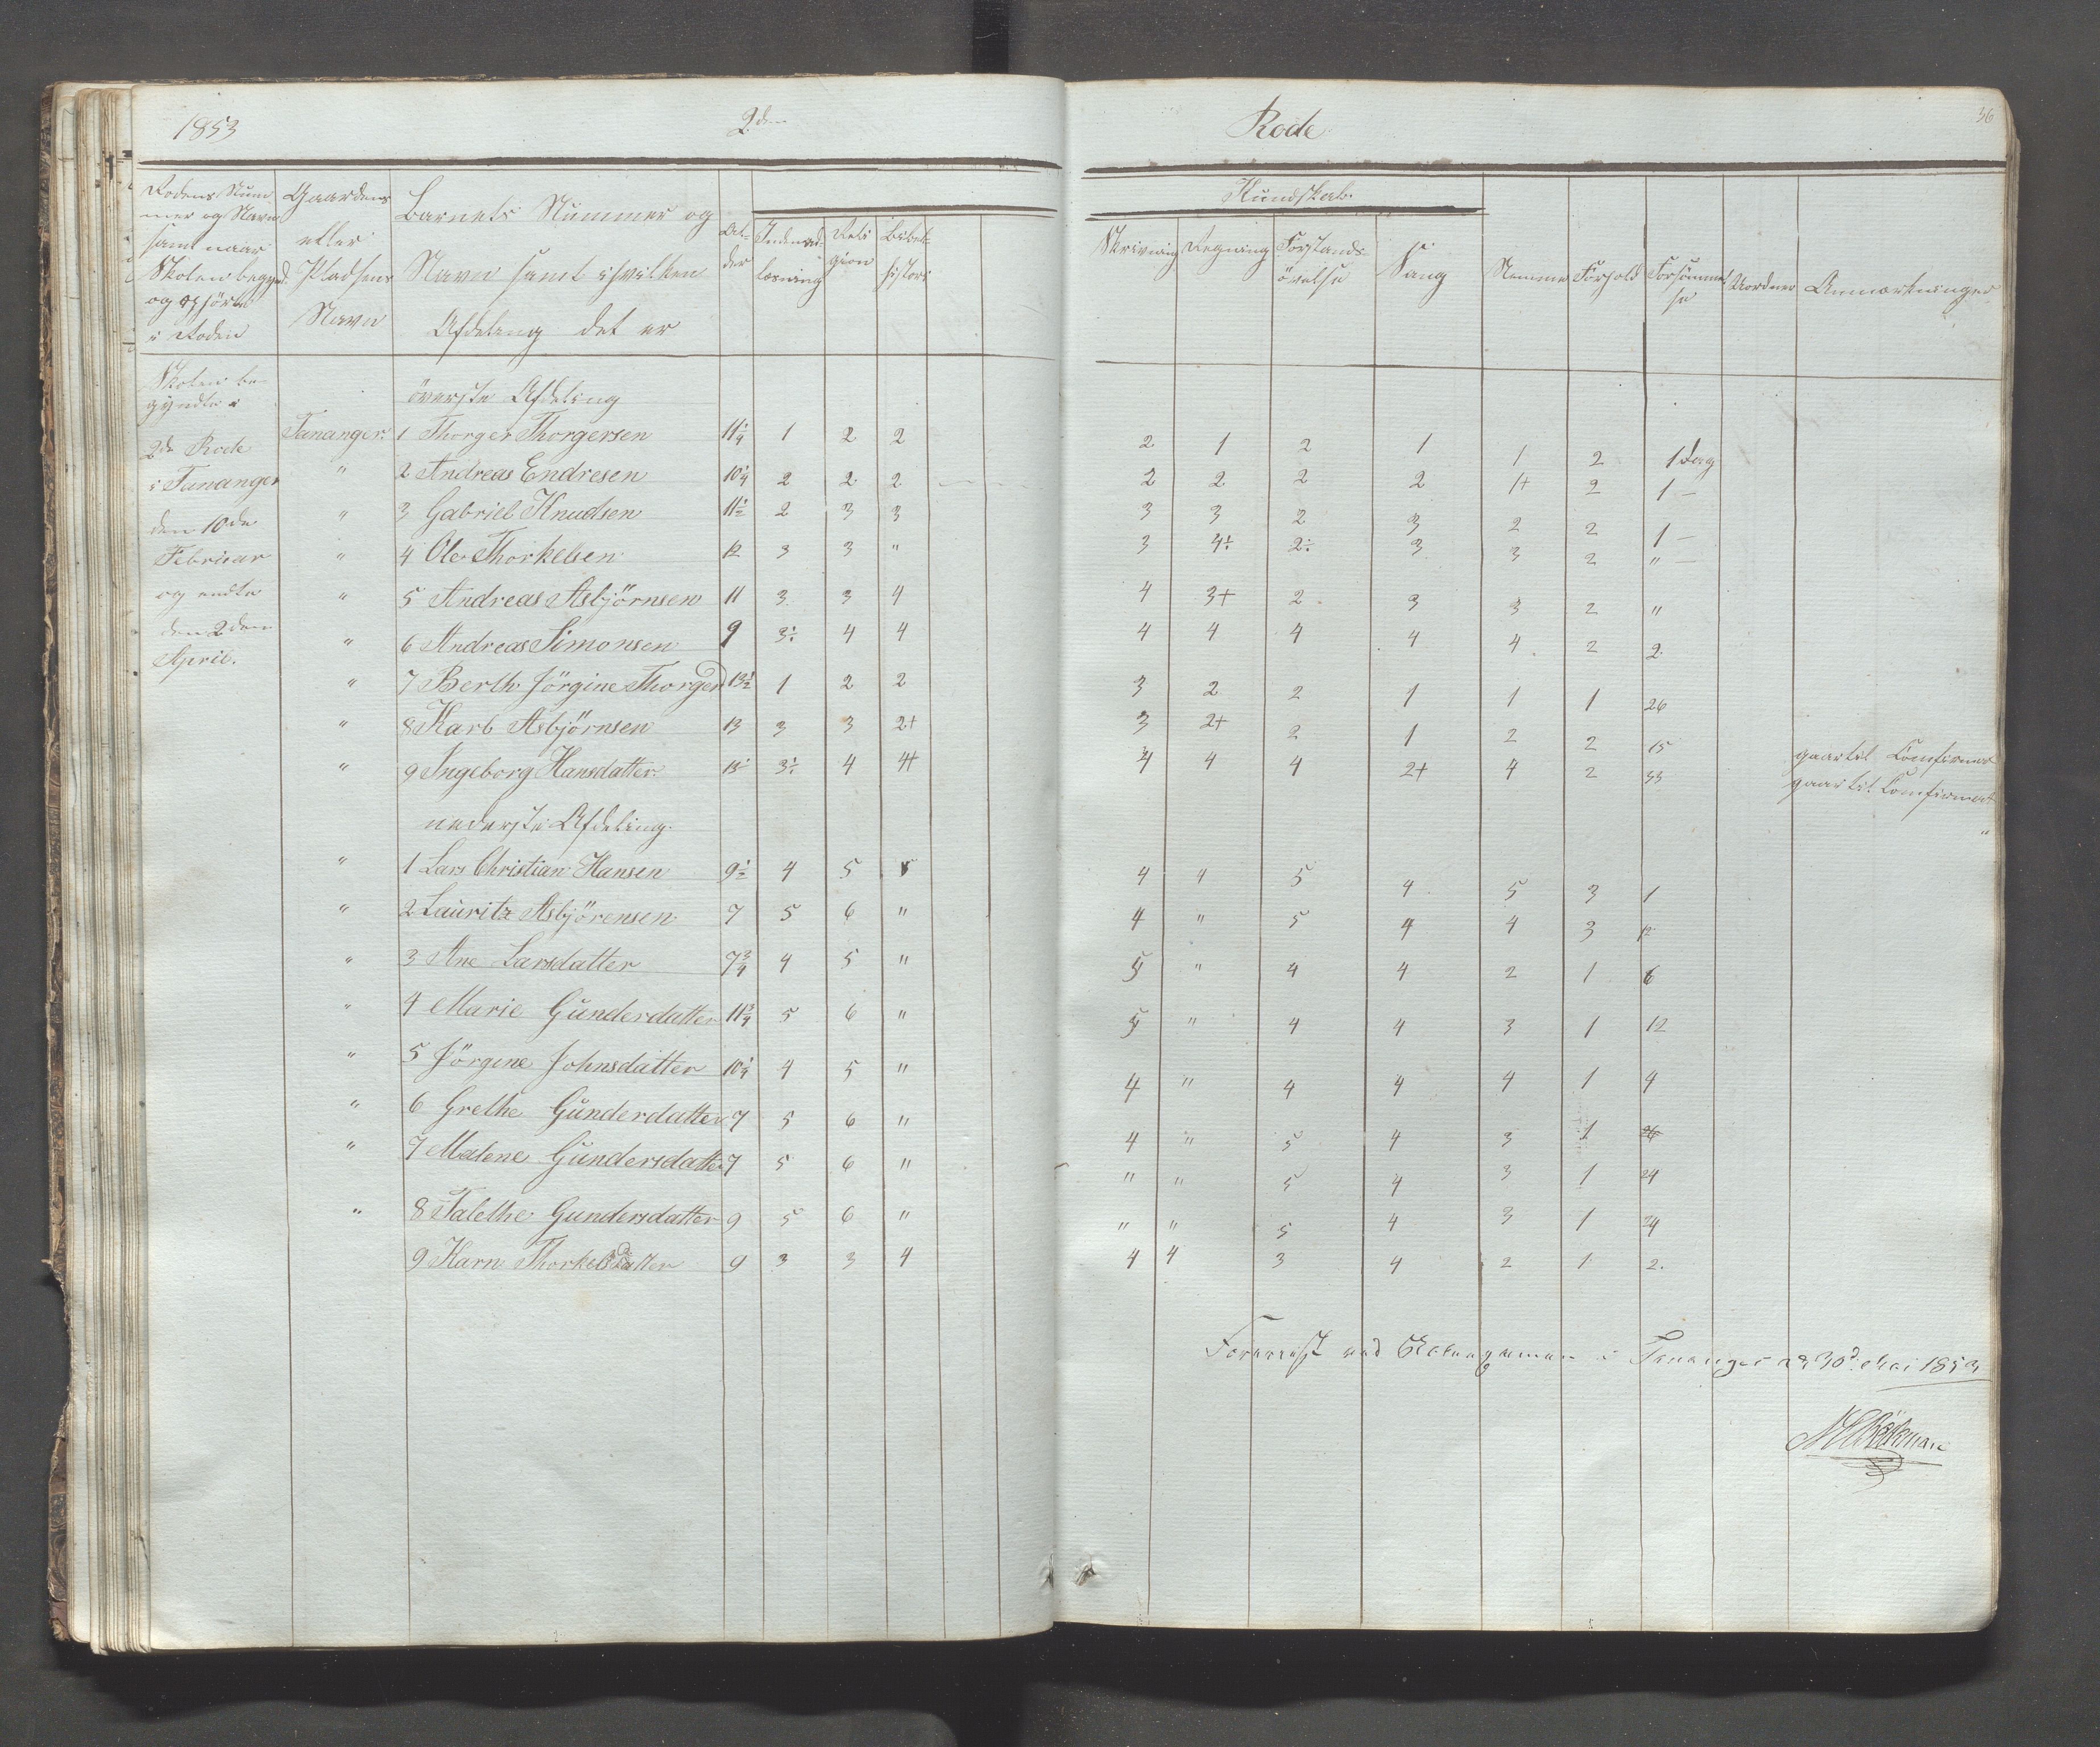 1853 2den Rode 36
Rodens Num-
mer og Navn
samt naar
Skolen begynd.
og ophörte
i Roden
Gaardens
eller
Pladsens
Navn
Barnets Nummer og
Navn samt i hvilken
Afdeling det er
Al-
der
Indenad-
læsning
Reli
gion
Bibel-
histori
Kundskab.
Skrivning
Regning
Forstands-
övelse
Sang
Nemme
Forhold
Forsömmel
se
Uorden
Anmærkninger
Skolen be-
gyndte i
2de Rode
i Tananger
den 10de
Februar
og endte
den 2den
April.
överste Afdeling
Tananger. 1 Thorger Thorgersen 11¼ 1 2 2 2 1 2 1 1 2 1 Dag
" 2 Andreas Endresen 10¼ 2 2 2 2 2 2 2 1+ 2 1 –
" 3 Gabriel Knudsen 11½ 2 3 3 3 3 2 3 2 2 1 –
" 4 Ole Thorkelsen 12 3 3 " 3 4÷ 2÷ 3 3 2 " –
" 5 Andreas Asbjörnsen 11 3 3 4 4 3+ 2 3 3 2 "
" 6 Andreas Simonsen 9 3÷ 4 4 4 4 4 4 4 2 2
" 7 Berth. Jörgine Thorgerd 13½ 1 2 2 3 2 2 1 1 1 26
" 8 Karb Asbjörnsen 13 3 3 2+ 3 2+ 2 1 2 2 15 gaar til Comfirmat
" 9 Ingeborg Hansdatter 15 3÷ 4 4+ 4 4 4 2+ 4 2 33 gaar til Comfirmat
"
nederste Afdeling.
" 1 Lars Christian Hansen 9½ 4 5 5 4 4 5 4 5 3 1
" 2 Lauritz Asbjörensen 7 5 6 " 4 " 5 4 4 3 12
" 3 Ane Larsdatter 7¾ 4 5 " 5 " 4 4 2 1 6
" 4 Marie Gunderdatter 11¾ 5 6 " 5 " 4 4 3 1 12
" 5 Jörgine Johnsdatter 10¼ 4 5 " 4 " 4 4 4 1 4
" 6 Grethe Gunderdatter 7 5 6 " 4 " 5 4 3 1 26
" 7 Malene Gundersdatter 7 5 6 " " " 5 4 3 1 24
" 8 Talethe Gundersdatter 9 5 6 " " " 5 4 3 1 24
9 Karn Thorkelsdatter 9 3 3 4 4 4 3 4 2 1 2.
Foreviist ved i Tananger d 30d. Mai 1853